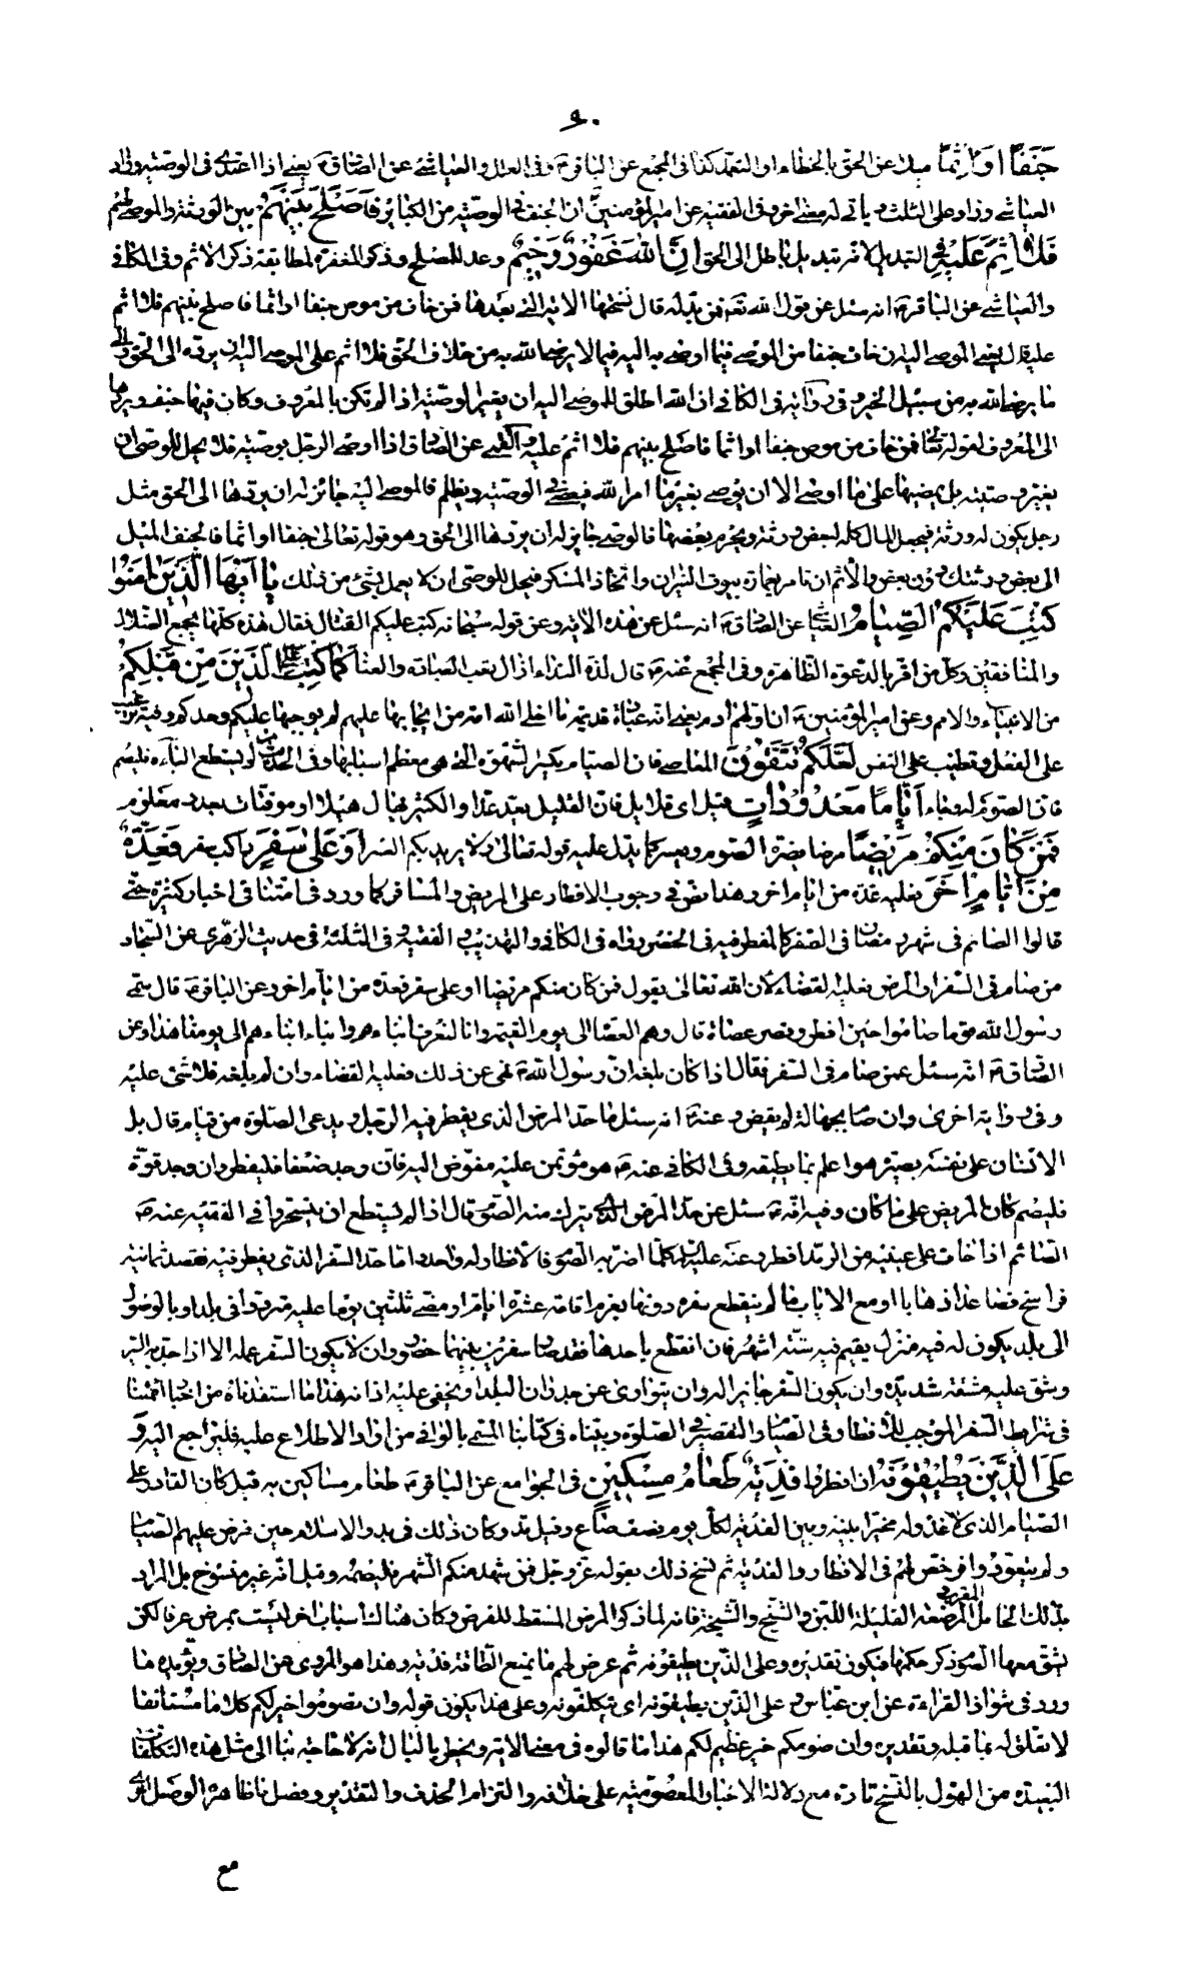 ٩٠
جَنَفًا أَوْ إِثْمًا ميلا عن الحق بالخطاء او التعمد كذا في المجمع عن الباقر ع وفى العلل والعياشي عن الصادق ع يعنى اذا اعتدى فى الوصية وزاد
العياشي وزاد على الثلث وياتي له معنى اخر وفى الفقيه عن امير المؤمنين ان الجنف فى الوصية من الكبائر فَأَصْلَحَ بَيْنَهُمْ بين الورثة والموصى لهم
فَلَا إِثْمَ عَلَيْهِ فى التبديل لانه تبديل باطل الى الحق إِنَّ اللَّهَ غَفُورٌ رَحِيمٌ وعد للمصلح وذكر المغفرة لمطابقة ذكر الاثم وفى الكافى
والعياشي عن الباقر ع انه سئل عن قول الله تعم فمن بدله قال نسختها الاية التى بعدها فمن خاف من موص جنفا او اثما فاصلح بينهم فلا اثم
عليه قال يعنى الموصى اليه ان خاف جنفا من الموصى فيما اوصى به اليه فيما لا يرضى الله به من خلاف الحق فلا اثم على الموصى اليه ان يرده الى الحق والى
ما يرضى الله به من سبيل الخير وفى رواية فى الكافى ان الله اطلق للموصى اليه ان يغير الوصية اذا لم تكن بالمعروف وكان فيها حيف ويردها
الى المعروف لقوله تعالى فمن خاف من موص جنفا او اثما فاصلح بينهم فلا اثم عليه والقمي عن الصادق اذا اوصى الرجل بوصية فلا يحل للوصي ان
يغير وصيته بل يمضيها على ما اوصى الا ان يوصى بغير ما امر الله فيعصى فى الوصية ويظلم فالموصى اليه جائز له ان يردها الى الحق مثل
رجل يكون له ورثة فيجعل المال كله لبعض ورثته ويحرم بعضها فالوصي جايز له ان يردها الى الحق وهو قوله تعالى جنفا او اثما فالجنف الميل
الى بعض ورثتك دون بعض والاثم ان تامر بعمارة بيوت النيران واتخاذ المسكر فيحل للوصي ان لا يعمل بشئ من ذلك يَا أَيُّهَا الَّذِينَ آمَنُوا
كُتِبَ عَلَيْكُمُ الصِّيَامُ العياشي عن الصادق ع انه سئل عن هذه الاية وعن قوله سبحانه كتب عليكم القتال فقال هذه كلها يجمع الضلال
والمنافقين وكل من اقر بالدعوة الظاهرة وفى المجمع عنه ع قال لذة النداء ازال تعب العبادة والعناء كَمَا كُتِبَ عَلَى الَّذِينَ مِنْ قَبْلِكُمْ
من الانبياء والامم وعن امير المؤمنين ع ان اولهم ادم يعنى انه عبادة قديمة ما اخلى الله امة من ايجابها عليهم لم يوجبها عليكم وحدكم وفيه ترغيب
على الفعل وتطييب على النفس لَعَلَّكُمْ تَتَّقُونَ المعاصى فان الصيام يكسر الشهوة التى هى معظم اسبابها وفى الحديث من لم يستطع الباءه فليصم
فان الصوم له وجاء أَيَّامًا مَعْدُودَاتٍ قيل اى قلايل فان القليل يعد عدا والكثير يهال هيلا او موقتات بعدد معلوم
فَمَنْ كَانَ مِنْكُمْ مَرِيضًا مرضا يضره الصوم ويعسر كما يدل عليه قوله تعالى ولا يريد بكم العسر أَوْ عَلَى سَفَرٍ راكب سفر فَعِدَّةٌ
مِنْ أَيَّامٍ أُخَرَ فعليه عدة من ايام اخر وهذا نص فى وجوب الافطار على المريض والمسافر كما ورد فى ائمتنا فى اخبار كثيرة حتى
قالوا الصائم فى شهر رمضان فى السفر كالمفطر فيه فى الحضر رواه فى الكافى والتهذيب والفقيه وفى الثلثة فى حديث الزهرى عن السجاد
من صام فى السفر او المرض فعليه القضاء لان الله تعالى يقول فمن كان منكم مريضا او على سفر فعدة من ايام اخر وعن الباقر ع قال سمى
رسول الله ص قوما صاموا حين افطر وقصر عصاة قال وهم العصاة الى يوم القيمة وانا لنعرف ابناءهم وابناء ابناءهم الى يومنا هذا وعن
الصادق ع انه سئل عمن صام فى السفر فقال اذا كان بلغه ان رسول الله ص نهى عن ذلك فعليه القضاء وان لم يبلغه فلا شئ عليه
وفى رواية اخرى وان صام بجهالة لم يقض وعنه ع انه سئل ما حد المرض الذى يفطر فيه الرجل ويدع الصلوة من قيام قال بل
الانسان على نفسه بصيرة هو اعلم بما يطيقه وفى الكافى عنه ع هو مؤتمن عليه مفوض اليه فان وجد ضعفا فليفطر وان وجد قوة
فليصم كان المريض على ما كان وفيه انه ع سئل عن حد المرض الذى يترك منه الصوم قال اذا لم يستطع ان يتسحر وفى الفقيه عنه ع
الصائم اذا خاف على عينيه من الرمد افطر وعنه عليه السلام كلما اضر به الصوم فالافطار له واجب واما حد السفر الذى يفطر فيه فقصد ثمانية
فراسخ فصاعدا ذهابا او مع الاياب ما لم ينقطع سفره دونها بعزم اقامة عشرة ايام او مضى ثلثين يوما عليه مترددا فى بلد او بالوصول
الى بلد يكون له فيه منزل يقيم فيه ستة اشهر فان انقطع باحدها فقد صار سفرين بينهما حضور وان لا يكون السفر عمله الا اذا جد به السير
وشق عليه مشقة شديدة وان يكون السفر جايزا له وان يتوارى عن جدران البلد او يخفى عليه اذانه هذا ما استفدناه من اخبار ائمتنا
فى شرايط السفر الموجب للافطار فى الصيام والتقصير فى الصلوة وبيناه فى كتابنا المسمى بالوافى من اراد الاطلاع عليه فليراجع اليه وَ
عَلَى الَّذِينَ يُطِيقُونَهُ ان افطروا فِدْيَةٌ طَعَامُ مِسْكِينٍ فى الجوامع عن الباقر ع طعام مساكين به قيل كان القادر على
الصيام الذى لا عذر له مخيرا بينه وبين الفدية لكل يوم نصف صاع وقيل مد وكان ذلك فى بدو الاسلام حين فرض عليهم الصيام
ولم يتعودوا فرخص لهم فى الافطار والفدية ثم نسخ ذلك بقوله عز وجل فمن شهد منكم الشهر فليصمه وقيل انه غير منسوخ بل المراد
بذلك الحامل المقرب والمرضعة القليلة اللبن والشيخ والشيخة فانه لما ذكر المرض المسقط للفرض وكان هناك اسباب اخر ليست بمرض عرفا لكن
يشق معها الصوم ذكر حكمها فيكون تقديره وعلى الذين يطيقونه ثم عرض لهم ما يمنع الطاقة فدية وهذا هو المروى عن الصادق ويؤيده ما
ورد فى شواذ القراءة عن ابن عباس وعلى الذين يطيقونه اى يتكلفونه وعلى هذا يكون قوله وان تصوموا خير لكم كلاما مستانفا
لا تعلق له بما قبله وتقديره وان صومكم خير عظيم لكم هذا ما قالوه فى معنى الاية ويخطر بالبال انه لا حاجة بنا الى مثل هذه التكلفات
البعيدة من القول بالنسخ تارة مع دلالة الاخبار المعصومية على خلافه والتزام الحذف والتقدير وفصل ما ظاهره الوصل اخرى
مع